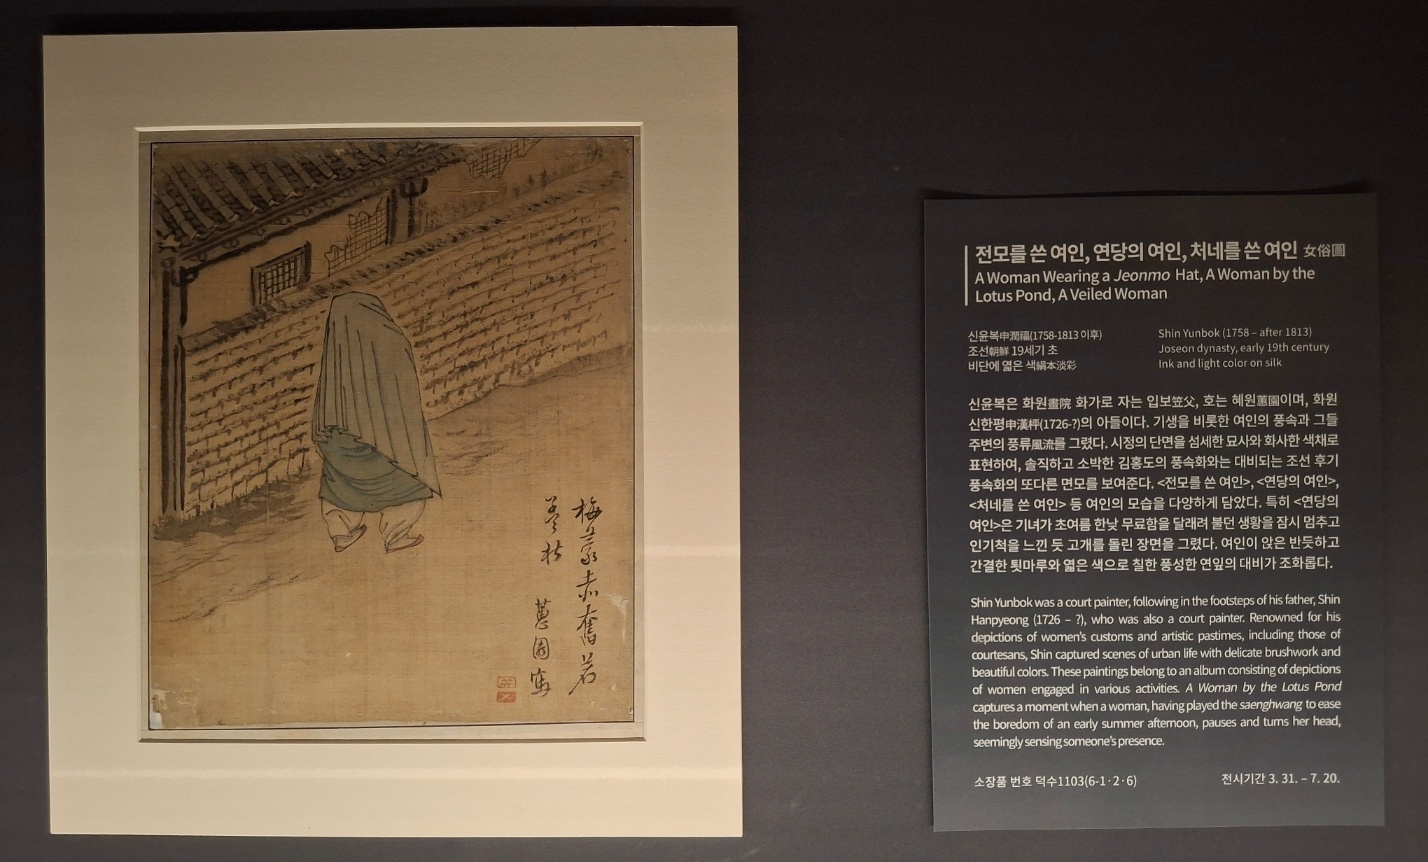 梅蒙赤奮若
暮秋 蕙園寫
전모를 쓴 여인, 연당의 여인, 처네를 쓴 여인 女俗圖
A Woman Wearing a Jeonmo Hat, A Woman by the
Lotus Pond, A Veiled Woman
신윤복申潤福(1758-1813 이후)
조선朝鮮 19세기 초
비단에 엷은 색絹本淡彩
Shin Yunbok (1758 – after 1813)
Joseon dynasty, early 19th century
Ink and light color on silk
신윤복은 화원畫院 화가로 자는 입보笠父, 호는 혜원蕙園이며, 화원
신한평申漢枰(1726-?)의 아들이다. 기생을 비롯한 여인의 풍속과 그들
주변의 풍류風流를 그렸다. 시정의 단면을 섬세한 묘사와 화사한 색채로
표현하여, 솔직하고 소박한 김홍도의 풍속화와는 대비되는 조선 후기
풍속화의 또다른 면모를 보여준다. <전모를 쓴 여인>, <연당의 여인>,
<처네를 쓴 여인> 등 여인의 모습을 다양하게 담았다. 특히 <연당의
여인>은 기녀가 초여름 한낮 무료함을 달래려 불던 생황을 잠시 멈추고
인기척을 느낀 듯 고개를 돌린 장면을 그렸다. 여인이 앉은 반듯하고
간결한 툇마루와 엷은 색으로 칠한 풍성한 연잎의 대비가 조화롭다.
Shin Yunbok was a court painter, following in the footsteps of his father, Shin
Hanpyeong (1726 – ?), who was also a court painter. Renowned for his
depictions of women's customs and artistic pastimes, including those of
courtesans, Shin captured scenes of urban life with delicate brushwork and
beautiful colors. These paintings belong to an album consisting of depictions
of women engaged in various activities. A Woman by the Lotus Pond
captures a moment when a woman, having played the saenghwang to ease
the boredom of an early summer afternoon, pauses and turns her head,
seemingly sensing someone's presence.
소장품 번호 덕수1103(6-1·2·6)
전시기간 3. 31. – 7. 20.